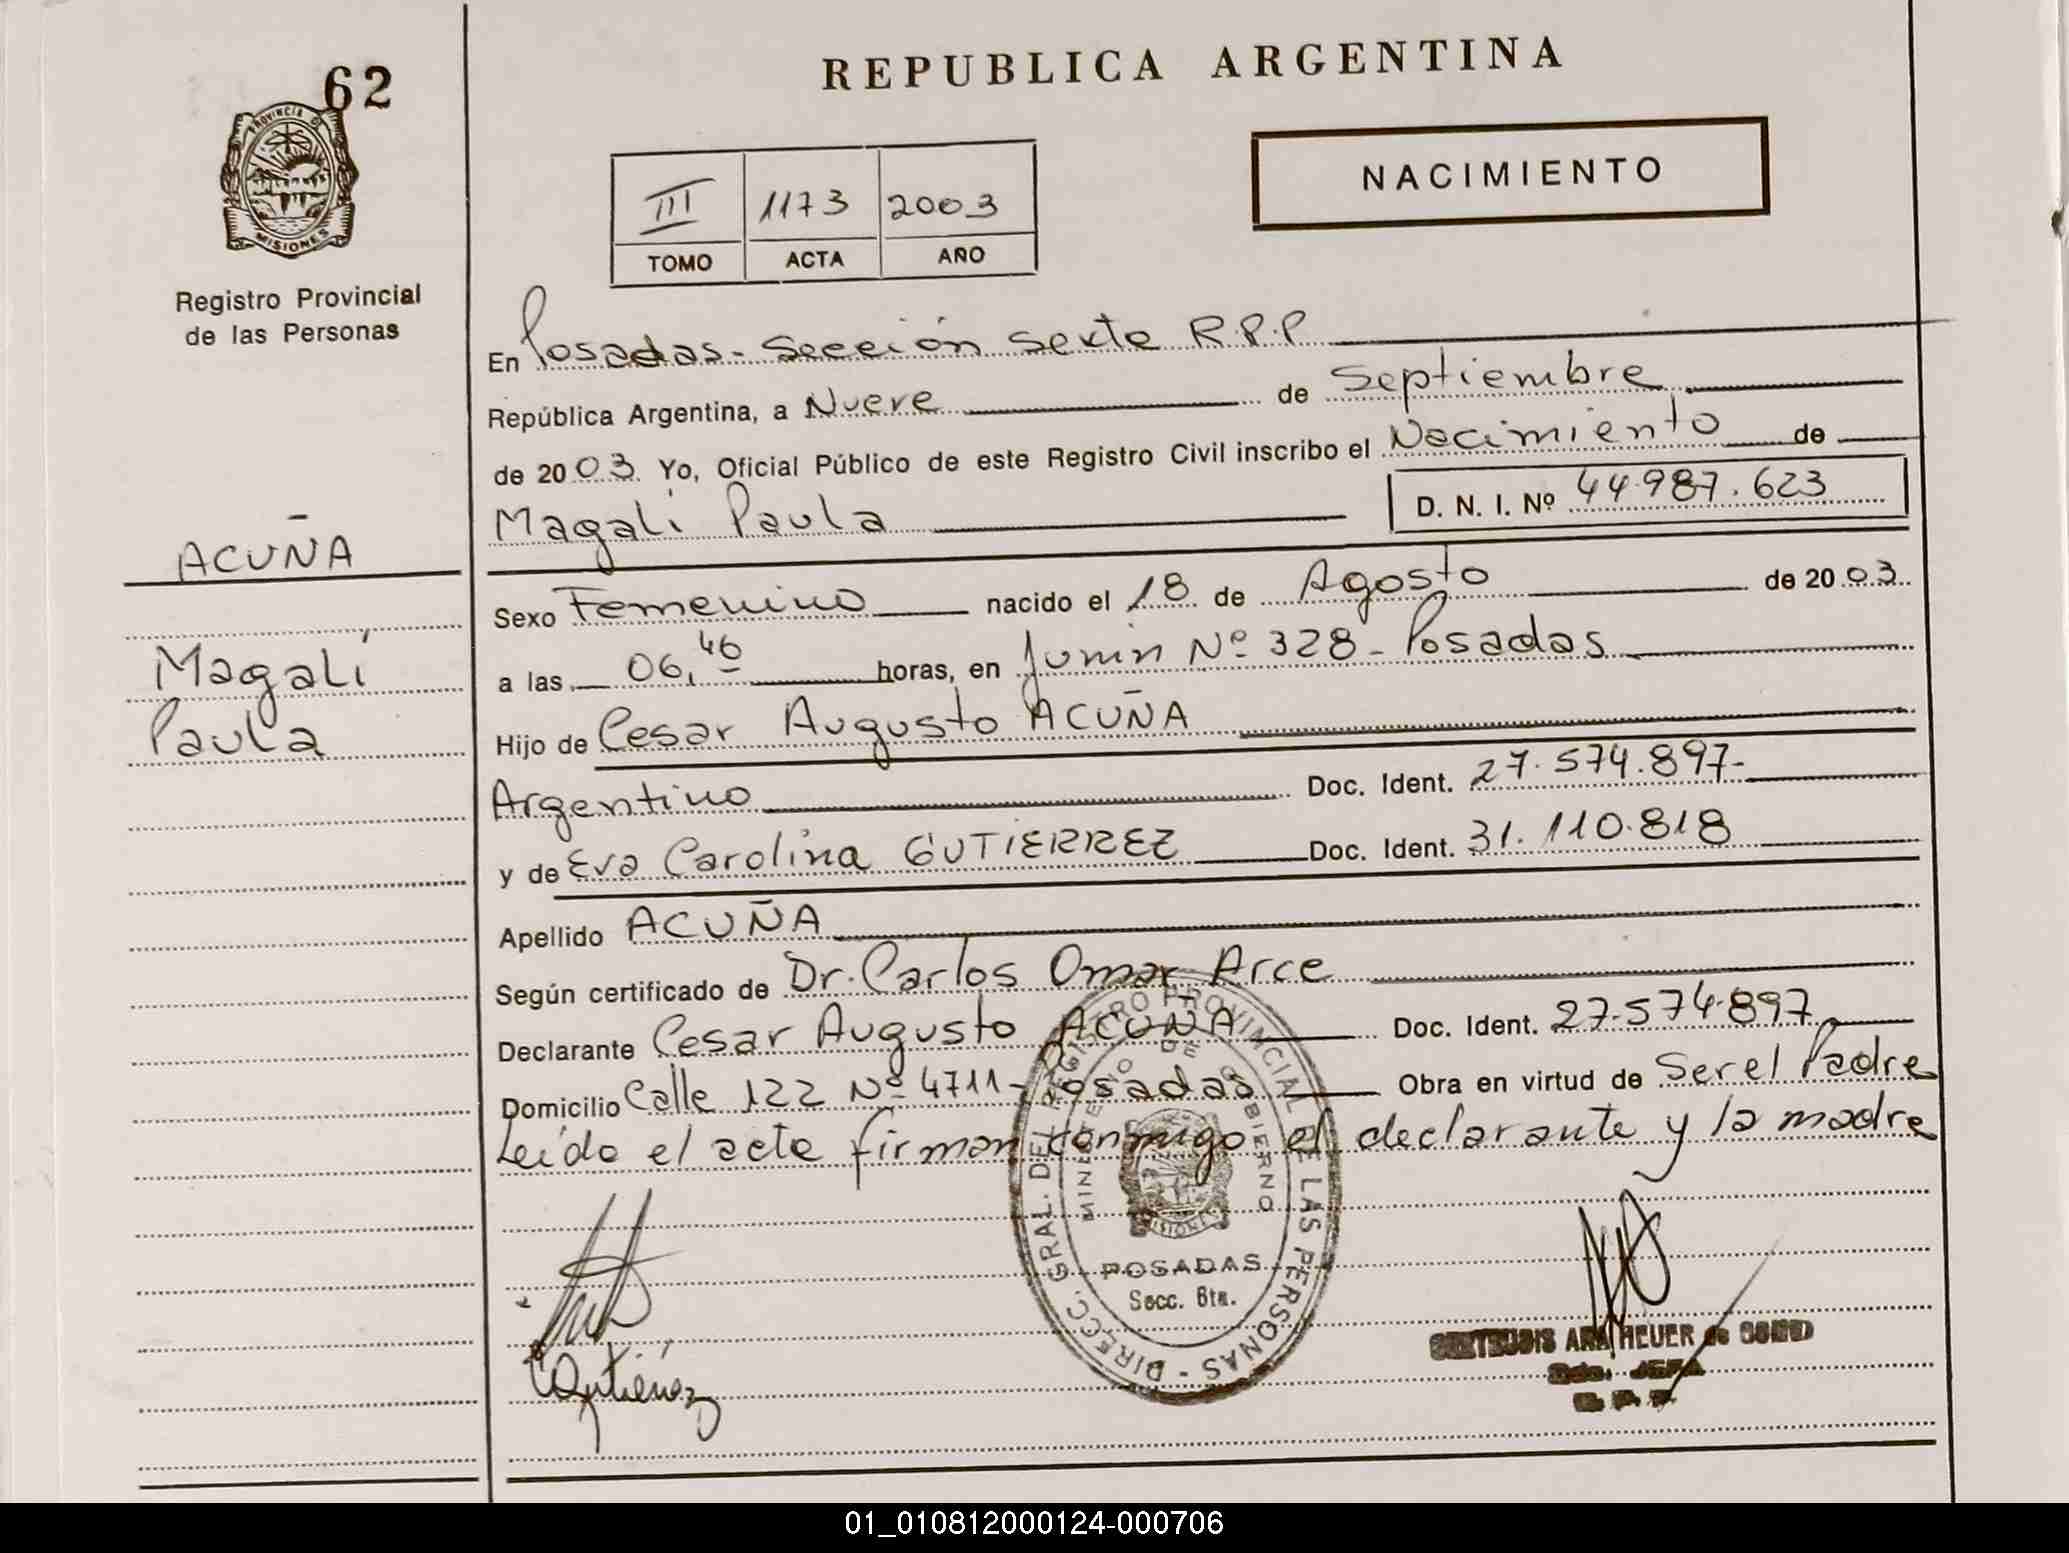 62
REPUBLICA ARGENTINA
PROVINCIA DE
MISIONES
NACIMIENTO
III 1173 2003
TOMO ACTA AÑO
Registro Provincial
de las Personas
En Posadas - Sección Sexta R.P.P
República Argentina, a Nueve de Septiembre
de 2003. Yo, Oficial Público de este Registro Civil inscribo el Nacimiento de
Magalí Paula D. N. I. Nº 44.987.623
ACUÑA
Magalí
Paula
Sexo Femenino nacido el 18 de Agosto de 2003
a las 06,46 horas, en Junin Nº 328 - Posadas
Hijo de Cesar Augusto ACUÑA
Argentino Doc. Ident. 27.574.897-
y de Eva Carolina GUTIERREZ Doc. Ident. 31.110.818
Apellido ACUÑA
Según certificado de Dr. Carlos Omar Arce
Declarante Cesar Augusto ACUÑA Doc. Ident. 27.574.897
Domicilio Calle 122 Nº 4711 - Posadas Obra en virtud de Ser el Padre
Leída el acta firman conmigo el declarante y la madre
DIRECC. GRAL. DEL REGISTRO PROVINCIAL DE LAS PERSONAS -
MINISTERIO DE GOBIERNO
MISIONES
POSADAS
Secc. 6ta.
CGutiérrez
ANA HEUER de
01_010812000124-000706